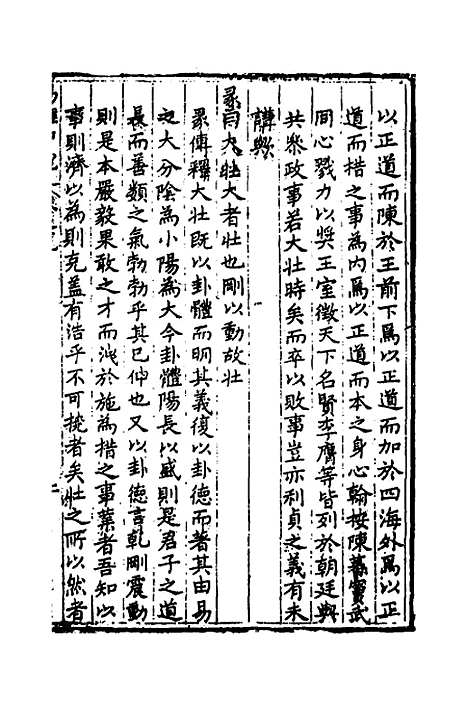 以正道而陳於王前下焉以正道而加於四海外焉以正
道而措之事為内焉以正道而本之身心翰按陳蕃竇武
同心戮力以奨王室徴天下名賢李膺等皆列於朝廷與
共叅政事若大壮時矣而卒以敗事豈亦利貞之義有未
講歟
彖曰大壮大者壮也剛以動故壮
彖傳釋大壮既以卦體而明其義復以卦德而著其由易
之大分陰為小陽為大今卦體陽長以盛則是君子之道
長而善類之氣勃勃乎其已伸也又以卦徳言乾剛震動
則是本嚴毅果敢之才而洩於施為措之事業者吾知以
事則濟以為則克盖有浩乎不可撓者矣壮之所以然者